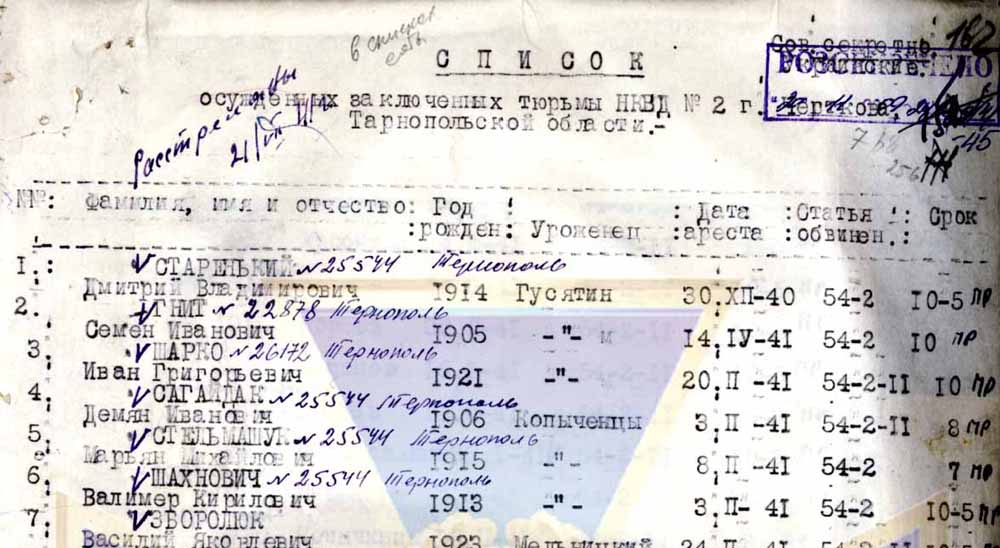 в списках
162
Сов.секретно.
СПИСОК
Украинские.
осужденных заключенных тюрьмы НКВД № 2 г. Черткова,
Тарнопольской области.-
Расстреляны
-45
№№: Фамилия, имя и отчество: Год : : Дата :Статья : Срок
:рожден: Уроженец :ареста :обвинен.:
1.: V СТАРЕНЬКИЙ N 25544 Тернополь
Дмитрий Владимирович 1914 Гусятин 30.ХП-40 54-2 10-5 пр
2. V ГНИТ N 22878 Тернополь
Семен Иванович 1905 -"- м 14.IУ-41 54-2 10 пр
3. V ШАРКО N 26172 Тернополь
Иван Григорьевич 1921 -"- 20.П -41 54-2-11 10 пр
4. V САГАЙДАК N 25544 Тернополь
Демян Иванович 1906 Копыченцы 3.П -41 54-2-11 8 пр
5. V СТЕЛЬМАЩУК N 25544 Тернополь
Марьян Михайлович 1915 -"- 8.П -41 54-2 7 пр
6. V ШАХНОВИЧ N 25544 Тернополь
Валимер Кирилович 1913 -"- 3.П- 41 54-2 10-5 пр
7. V ЗБОРОЛЮК
Василий Яковлевич 1923 Мельницкий 24.П -41